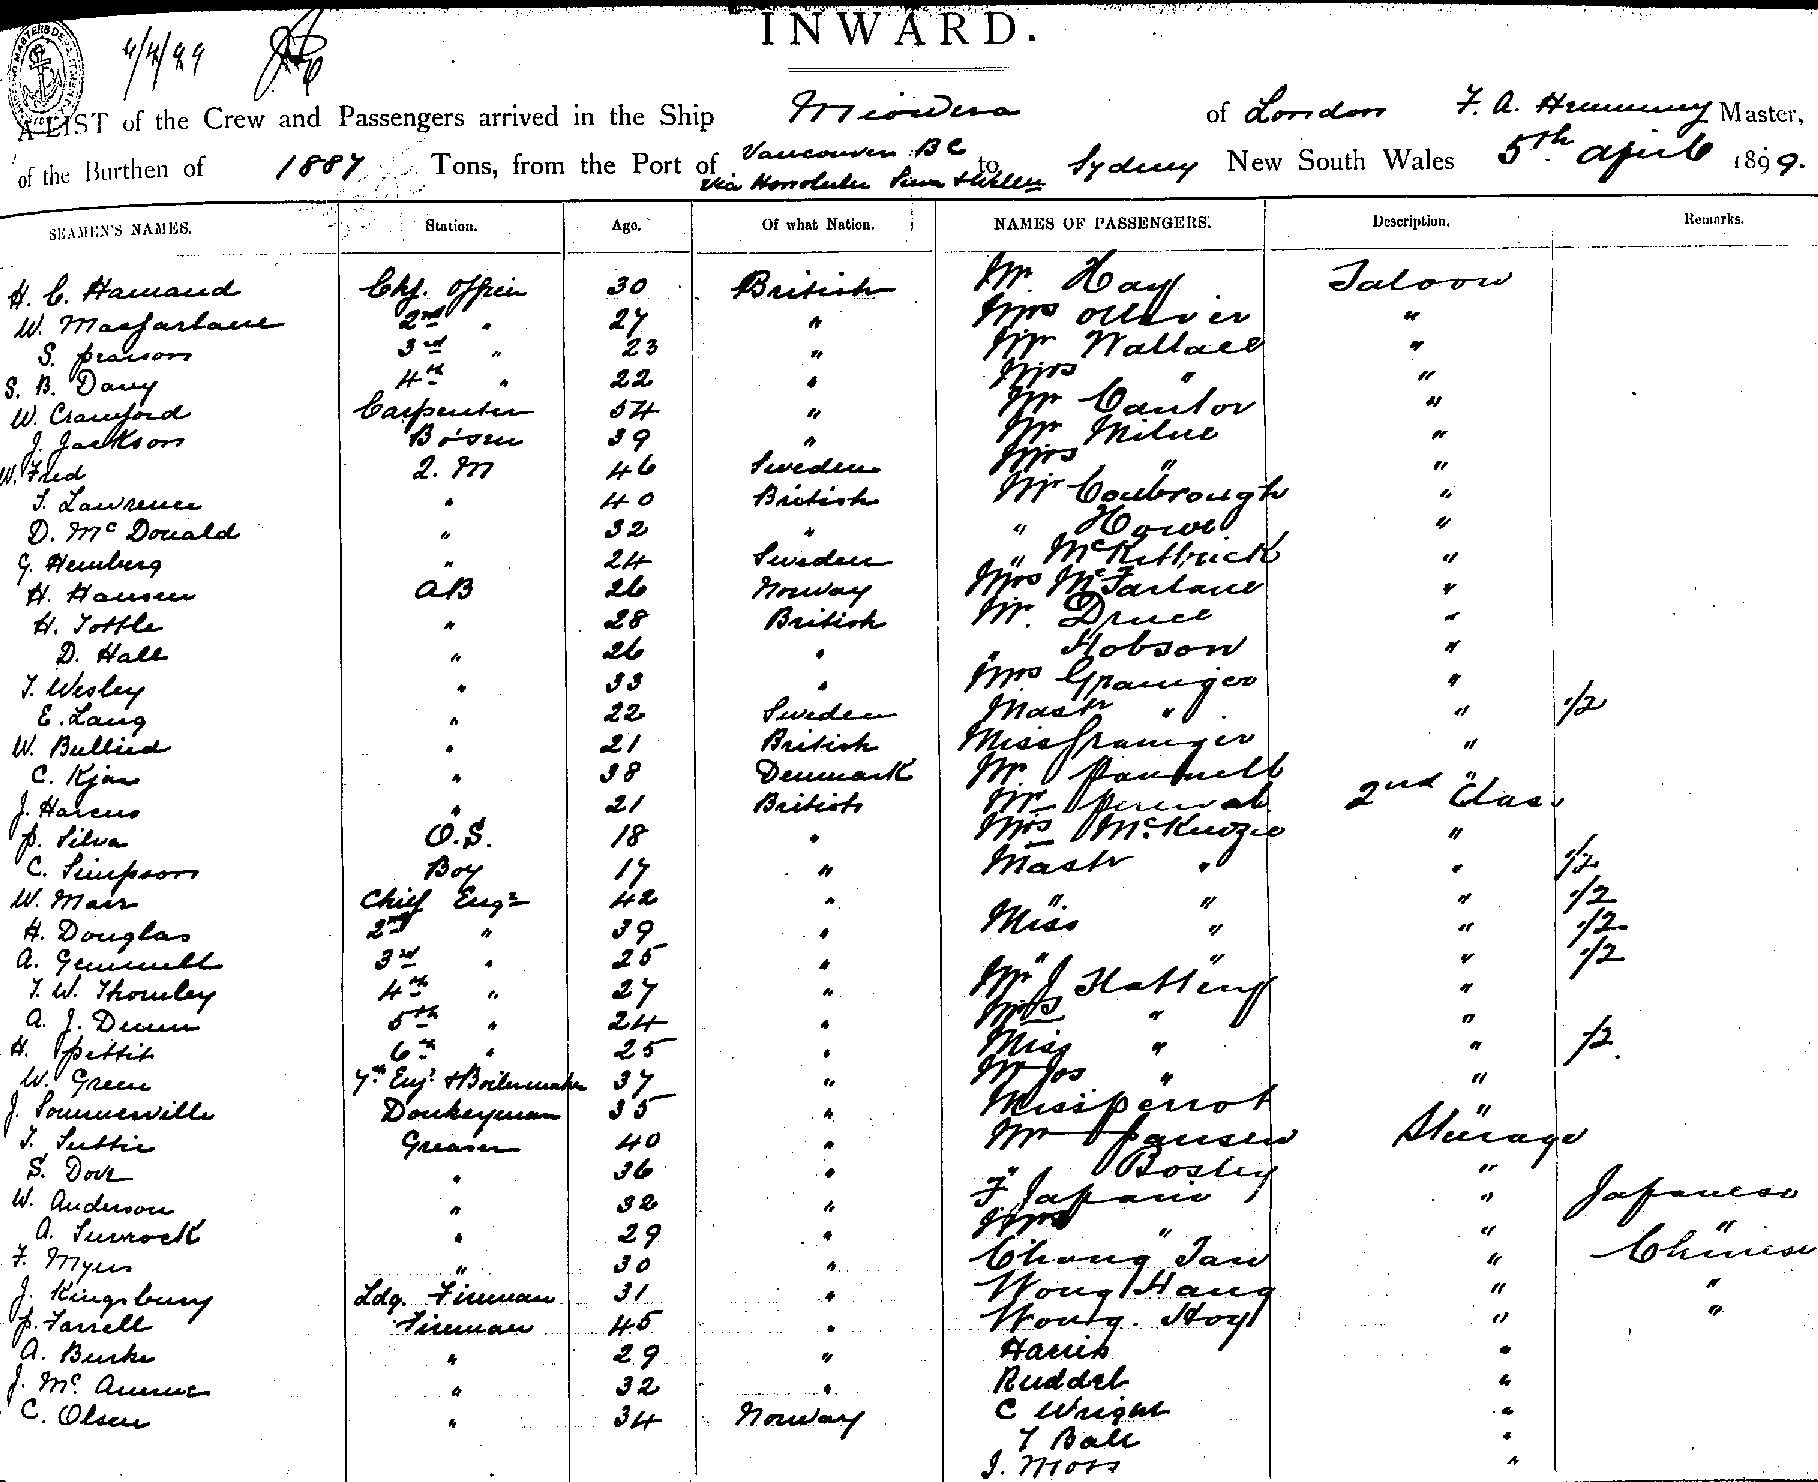 4/4/99
INWARD.
A LIST of the Crew and Passengers arrived in the Ship Miowera of London F. A. Hemming Master,
of the Burthen of 1887 Tons, from the Port of Vancouver BC via Honolulu to Sydney New South Wales 5th April 1899.
SEAMEN'S NAMES. Station. Age. Of what Nation. NAMES OF PASSENGERS. Description. Remarks.
H. C. Hamand Chf. Officer 30 British Mr. Hay Saloon
W. Macfarlane 2nd " 27 " Mrs Ollivier "
S. Pearson 3rd " 23 " Mr Wallace "
S. B. Davy 4th " 22 " Mrs " "
W. Crawford Carpenter 54 " Mr Cantor "
J. Jackson Bo'sen 39 " Mr Milne "
W. Fred Q. M 46 Sweden Mrs " "
T. Lawrence " 40 British Mr Coubrough "
D. McDonald " 32 " " Howe "
G. Hemberg " 24 Sweden " McKittrick "
H. Hansen AB 26 Norway Mrs McFarlane "
H. Tottle " 28 British Mr. Druce "
D. Hall " 26 " " Hobson "
T. Wesley " 33 " Mrs Grainger "
E. Lang " 22 Sweden Mastr " " 1/2
W. Bullied " 21 British Miss Grainger "
C. Kjar " 38 Denmark Mr Pannell "
J. Harcus " 21 British Mr Percival 2nd Class
P. Silva O.S. 18 " Mrs McKenzie "
C. Simpson Boy 17 " Mastr " " 1/2
W. Mair Chief Engr 42 " " " " 1/2
H. Douglas 2nd " 39 " Miss " " 1/2
A. Gemmell 3rd " 25 " " " " 1/2
T. W. Thornley 4th " 27 " Mr J Hatteng "
A. J. Dunn 5th " 24 " Mrs " "
H. Pettit 6th " 25 " Miss " " 1/2
W. Green 7th Engr & Boilermaker 37 " Mr Jos " "
J. Sommerville Donkeyman 35 " Miss Perrot "
T. Suttie Greaser 40 " Mr Jansen Steerage
S. Dove " 36 " " Bosley "
W. Anderson " 32 " F Japanis " Japanese
A. Surrock " 29 " Mrs " " "
F. Myers " 30 " Chong Tan " Chinese
J. Kingsbury Ldg. Fireman 31 " Wong Hang " "
P. Farrell Fireman 45 " Wong. Hoy " "
A. Burke " 29 " Harris "
J. Mc " 32 " Ruddel "
C. Olsen " 34 Norway C Wright "
T Ball "
J. Moss "